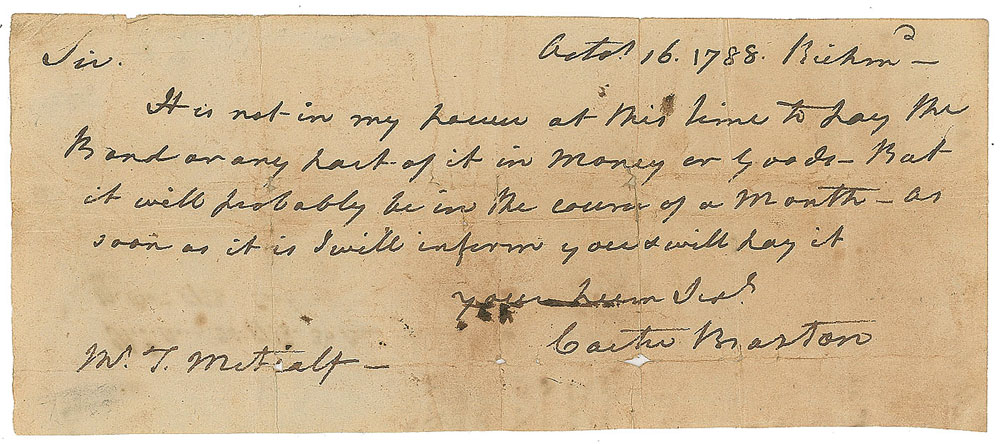 Octo.r 16. 1788. Richm.d —
Sir.
It is not in my power at this time to pay the
Bond or any part of it in Money or Goods — But
it will probably be in the course of a Month — as
soon as it is I will inform you & will pay it
your hum Ser.t
Carter Braxton
M.r T. Metcalf —